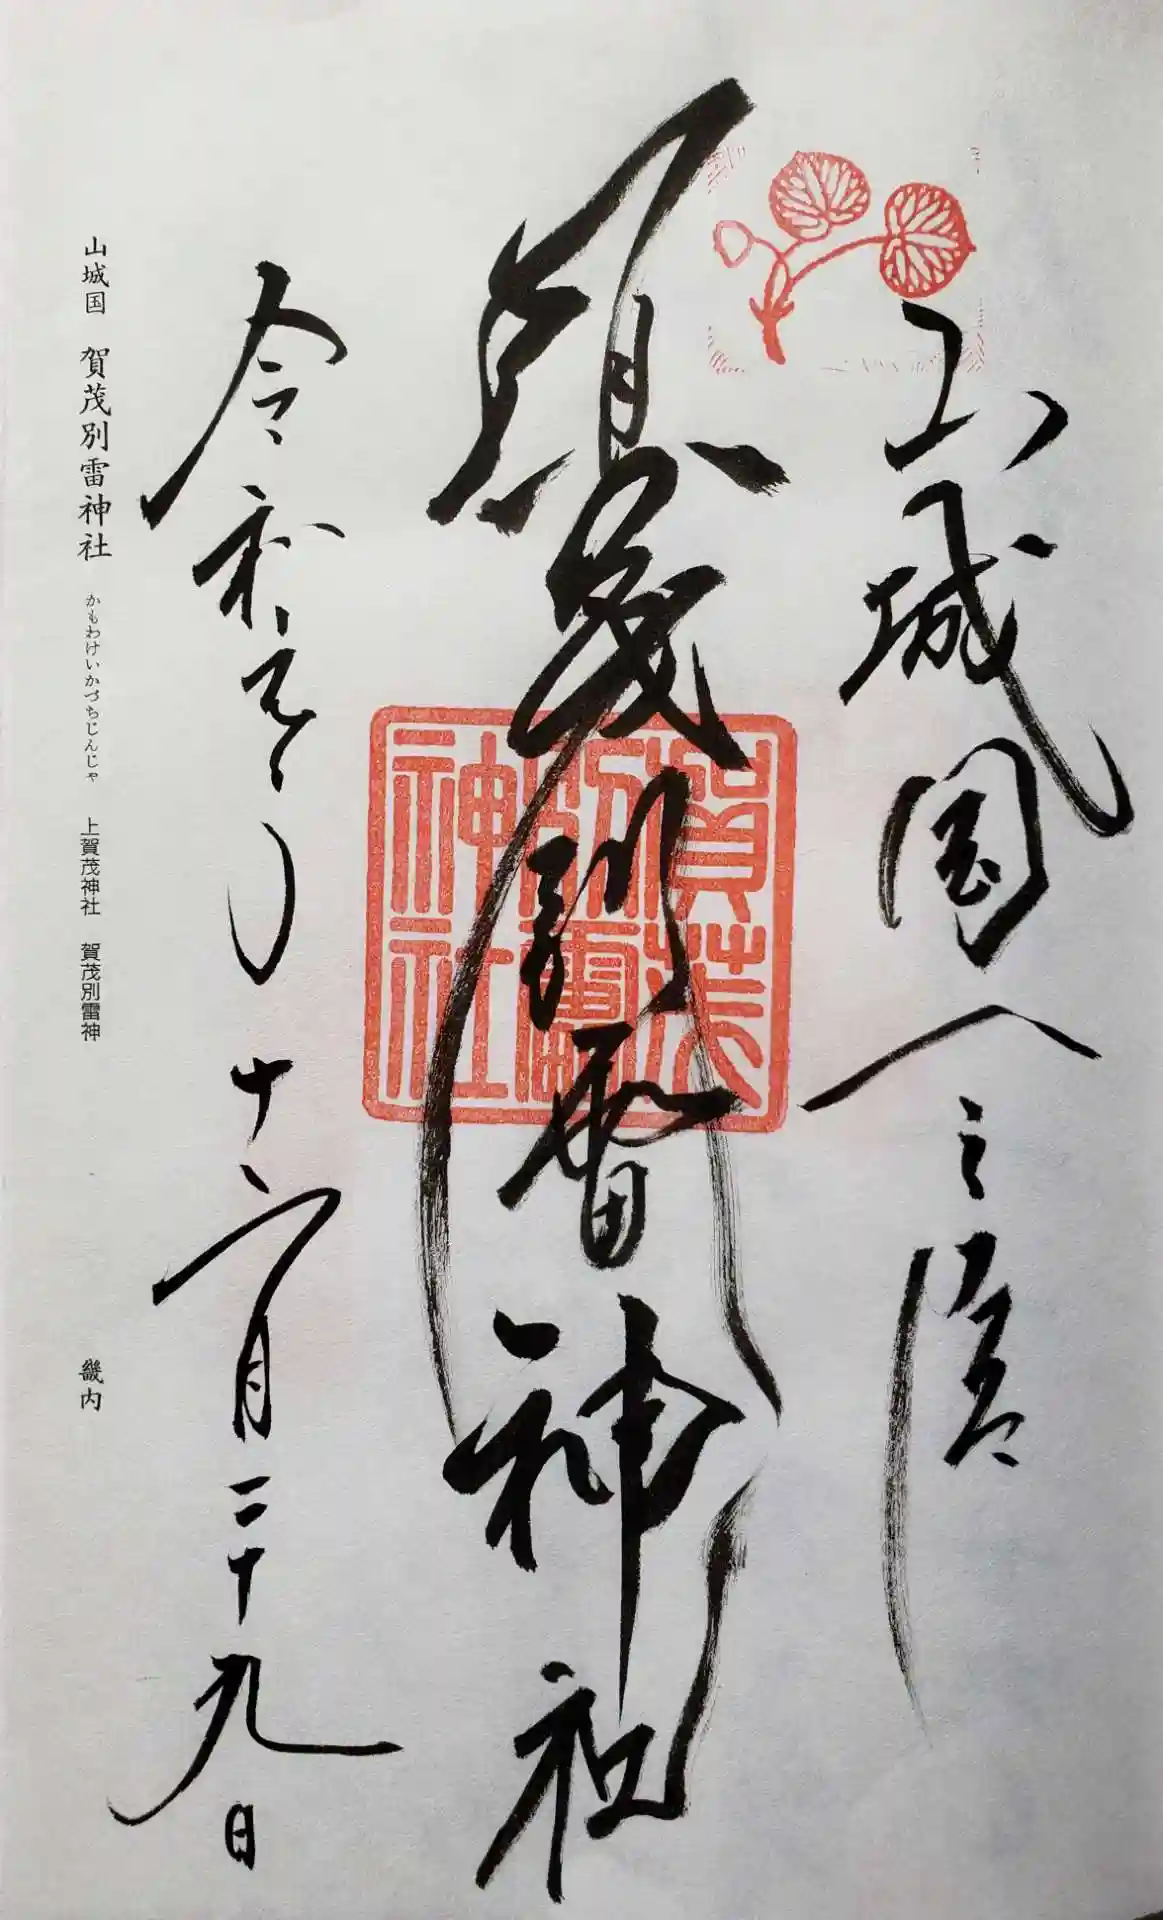 山城国一之宮
賀茂別雷神社
賀茂
別雷
神社
令和元年十二月二十九日
山城国 賀茂別雷神社 かもわけいかづちじんじゃ 上賀茂神社 賀茂別雷神 畿内